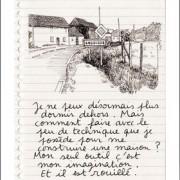 Je ne peux désormais plus
dormir dehors. Mais
comment faire avec le
peu de technique que je
possède pour me
construire une maison ?
Mon seul outil c'est
mon imagination.
Et il est rouillé.